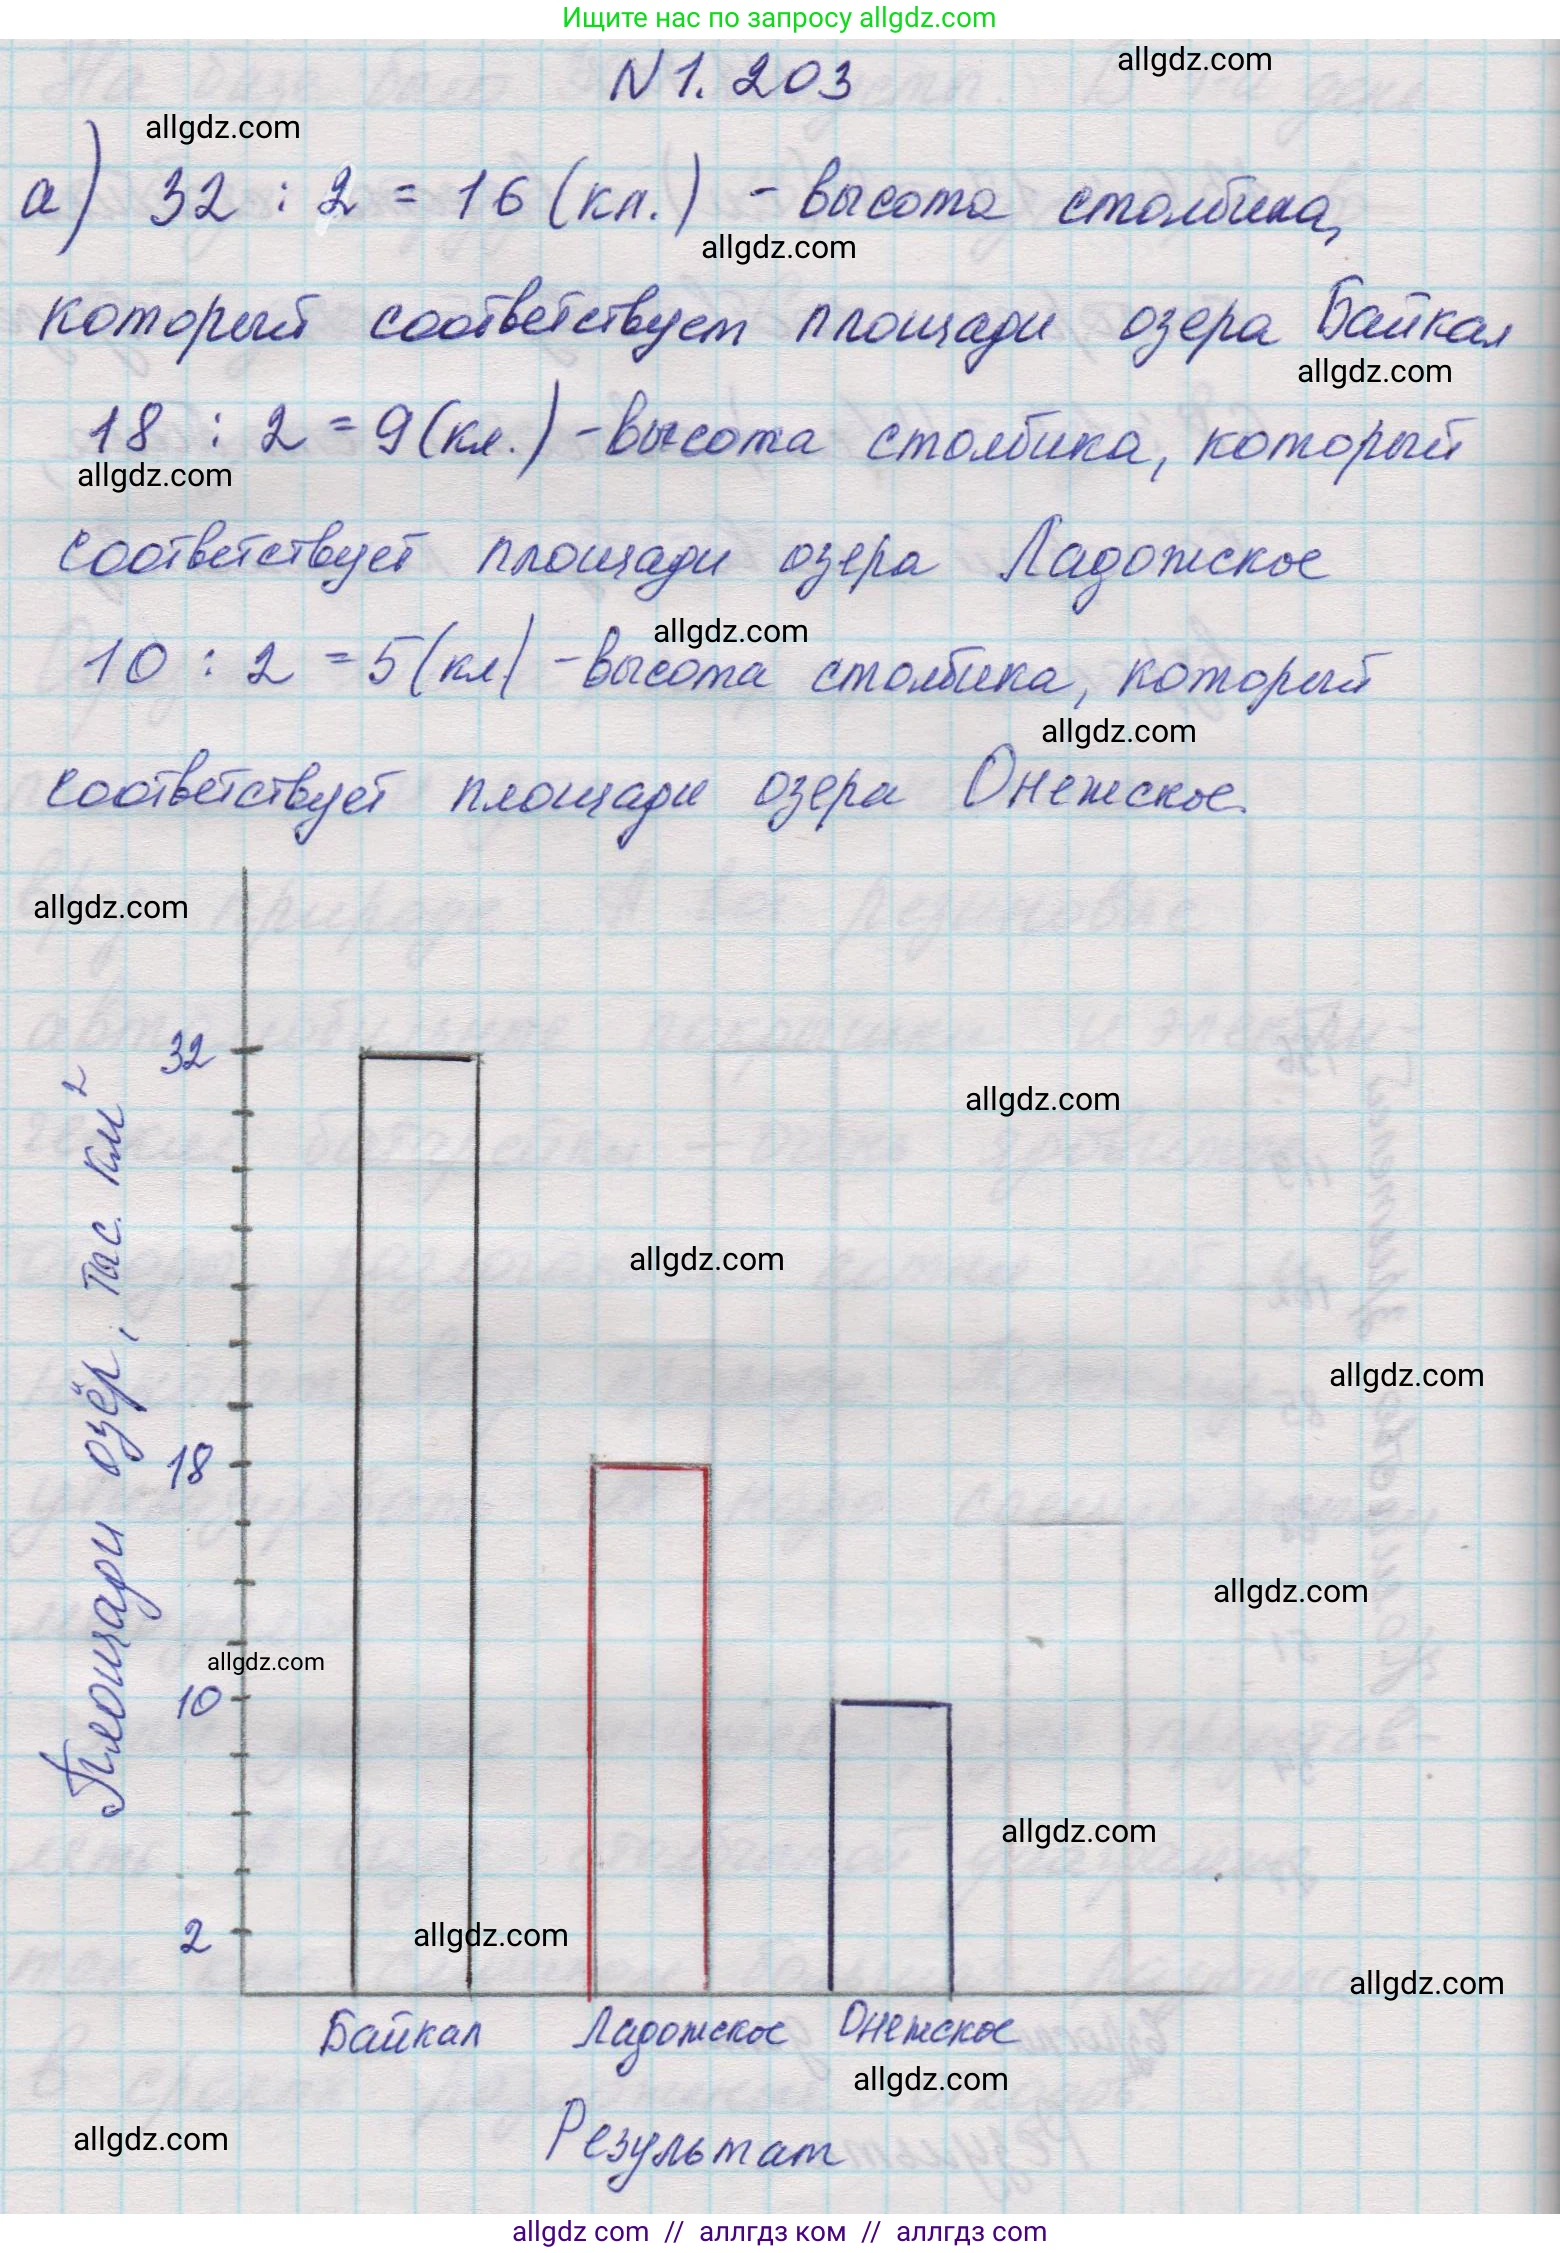 Ищите нас по запросу allgdz.com
N 1. 203
allgdz.com
allgdz.com
а) 32 : 2 = 16 (кл.) - высота столбика,
allgdz.com
который соответствует площади озера Байкал
allgdz.com
18 : 2 = 9 (кл.) - высота столбика, который
allgdz.com
соответствует площади озера Ладожское
allgdz.com
10 : 2 = 5 (кл) - высота столбика, который
allgdz.com
соответствует площади озера Онежское.
allgdz.com
32
Площади озёр, тыс. км²
allgdz.com
allgdz.com
allgdz.com
18
allgdz.com
allgdz.com
10
allgdz.com
2
allgdz.com
allgdz.com
Байкал Ладожское Онежское
allgdz.com
allgdz.com
Результат
allgdz.com // аллгдз ком // аллгдз com